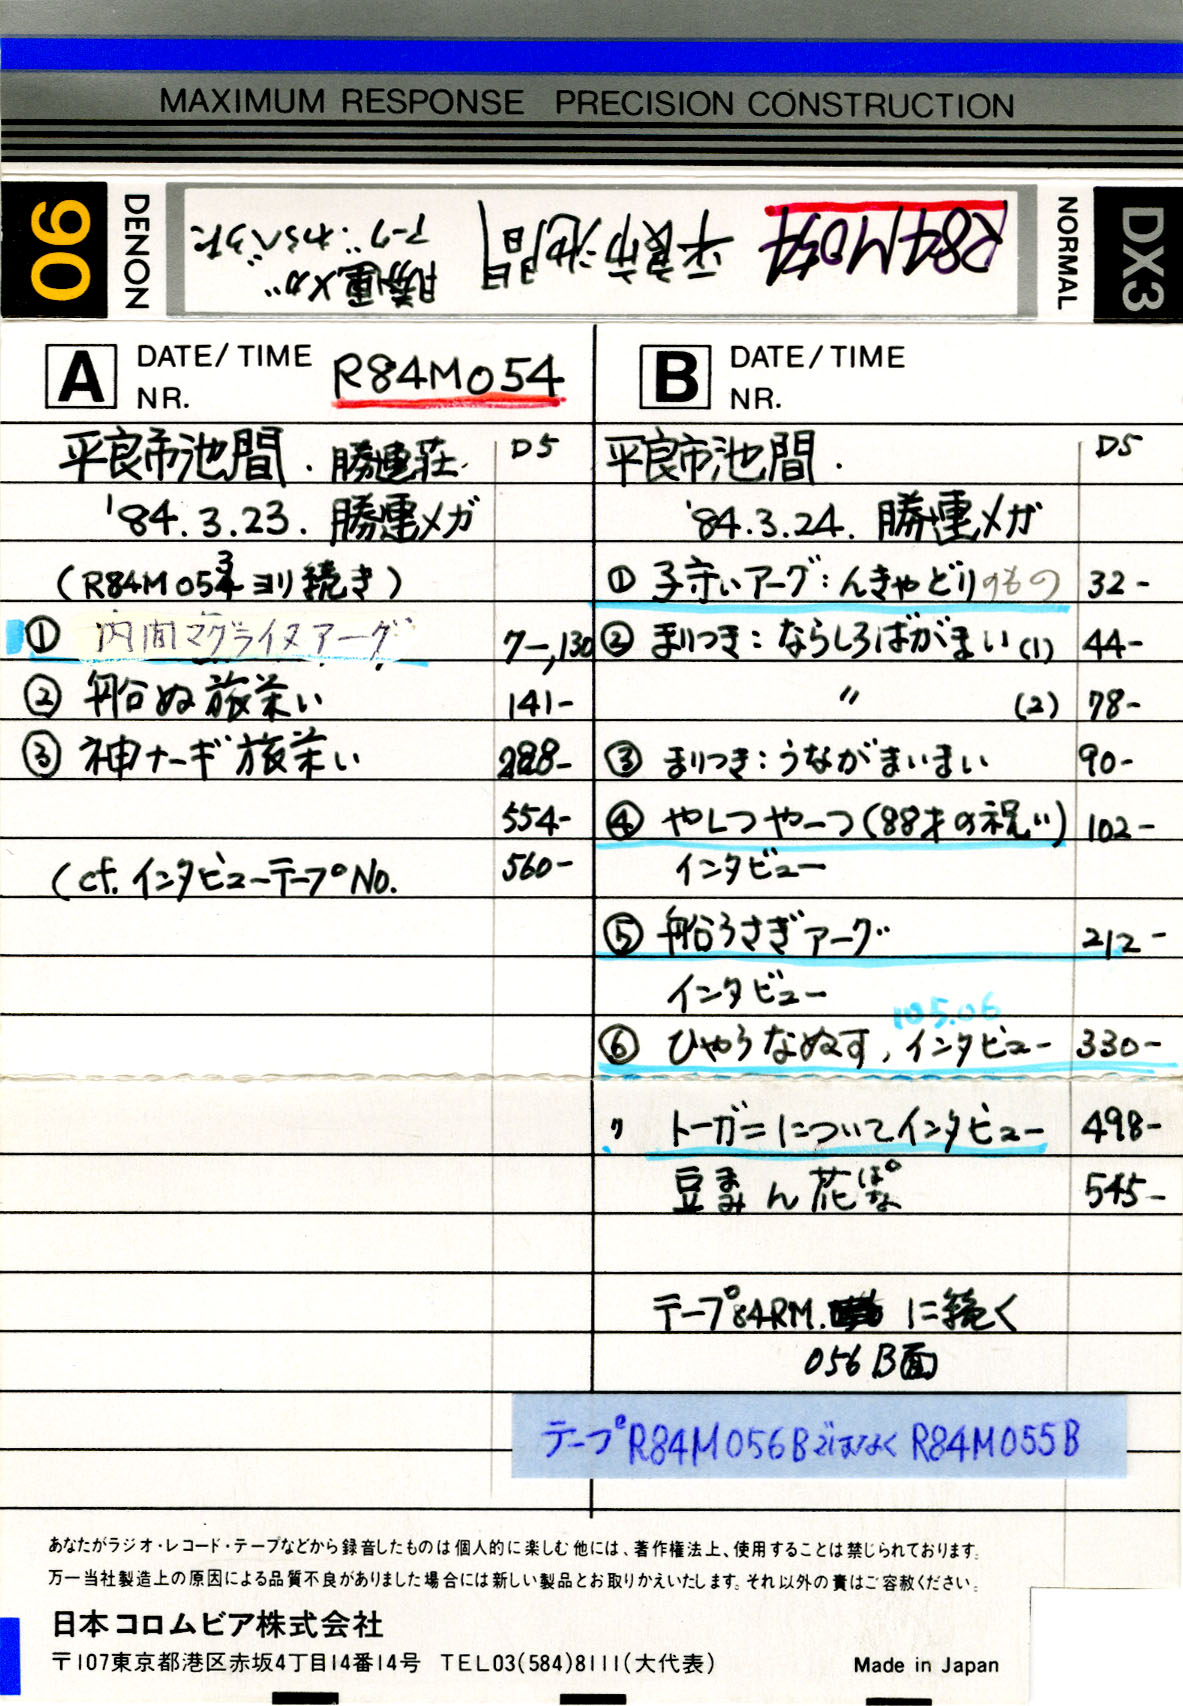 MAXIMUM RESPONSE PRECISION CONSTRUCTION
90
DENON
R84M054 平良市池間
勝連メガ
アーグ:わらべうた
NORMAL
DX3
A DATE/TIME
NR.
R84M054
平良市池間. 勝連荘. DS
'84.3.23. 勝連メガ
(R84M053ヨリ続き)
① 内間マグライヌアーグ 7-,130
② 船ぬ旅栄い 141-
③ 神ナーギ旅栄い 288-
554-
(cf.インタビューテープNo. 560-
B DATE/TIME
NR.
平良市池間. DS
'84.3.24. 勝連メガ
① 子守いアーグ:んきゃどりのもの 32-
② まりつき:ならしろばがまい(1) 44-
〃 (2) 78-
③ まりつき:うながまいまい 90-
④ やしつやーつ(88才の祝い) 102-
インタビュー
⑤ 船うさぎアーグ 212-
インタビュー
105.06
⑥ ひやうなぬす,インタビュー 330-
〃 トーガニについてインタビュー 498-
豆まみん花ぱな 545-
テープ84RM. に続く
056B面
テープR84M056BではなくR84M055B
あなたがラジオ・レコード・テープなどから録音したものは個人的に楽しむ他には、著作権法上、使用することは禁じられております。
万一当社製造上の原因による品質不良がありました場合には新しい製品とお取りかえいたします。それ以外の責はご容赦ください。
日本コロムビア株式会社
〒107東京都港区赤坂4丁目14番14号 TEL03(584)8111(大代表)
Made in Japan